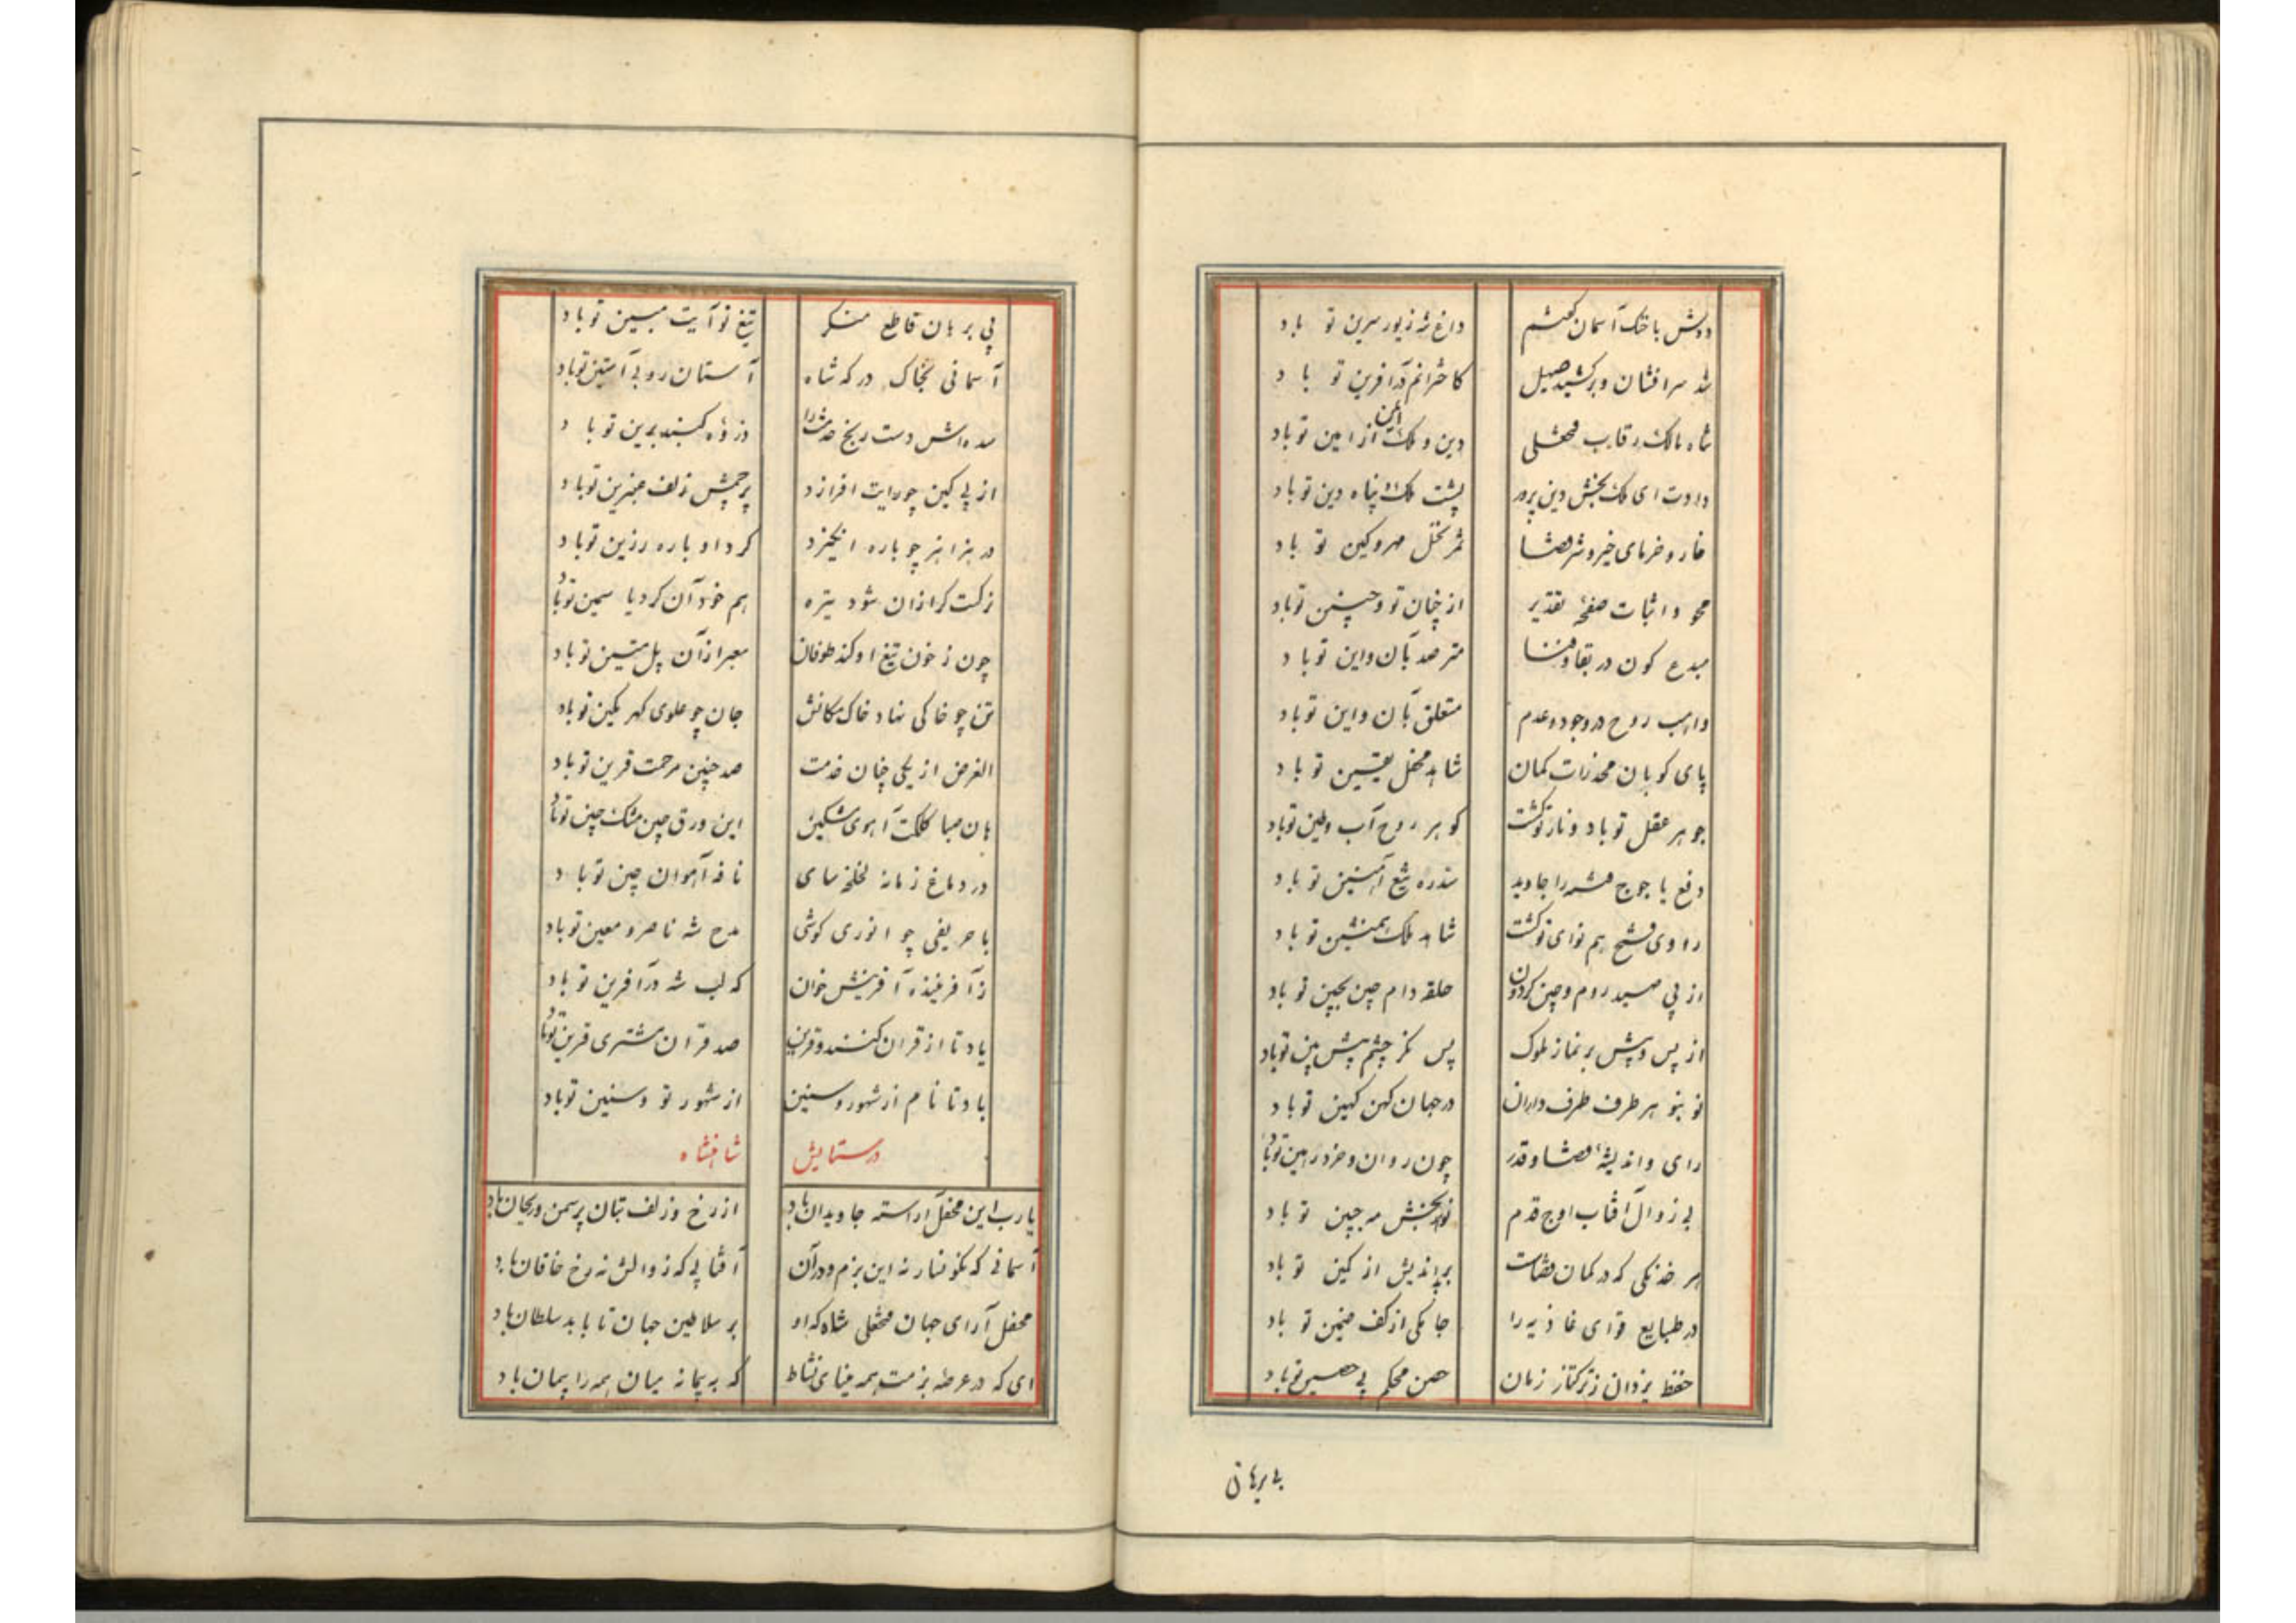 دوش با خنک آسمان گفتم داغ شه زیور سرین تو باد
شد سرافشان و برکشید صهیل کاخترانم در آفرین تو باد
شاه مالک رقاب فتحعلی دین و ملک ایمن از امین تو باد
داردت ای ملک بخش دین پرور پشت ملک و پناه دین تو باد
خار و خرمای خیر و شر قضا ثمر نخل مهر و کین تو باد
محو و اثبات صفحهٔ تقدیر از چنان تو و چنین تو باد
مبدع کون در بقا و فنا مترصد بآن و این تو باد
واهب روح در وجود و عدم متعلق بآن و این تو باد
پای کوبان مخدرات کمان شاهد محفل یقین تو باد
جوهر عقل تو باد و نار تو گشت گوهر روح آب و طین تو باد
دفع یاجوج فتنه را جاوید سد ره تیغ آهنین تو باد
راوی فتح هم نوای تو گشت شاهد ملک همنشین تو باد
از پی صید روم و چین گردون حلقه دام چین بچین تو باد
از پس و پیش بر نماز ملوک پس نگر چشم پیش بین تو باد
نو بنو هر طرف طرف داران در جهان کهن کهین تو باد
رای و اندیشهٔ قضا و قدر چون روان و خرد رهین تو باد
بی زوال آفتاب اوج قدم نور بخش مه جبین تو باد
هر خدنگی که در کمان قضاست بر بداندیش از کمین تو باد
در طبایع قوای غاذیه را جامکی از کف ضمین تو باد
حفظ یزدان ز ترکتاز زمان حصن محکم پی حصین تو باد
بی برهان
پی برهان قاطع منکر تیغ تو آیت مبین تو باد
آسمانی بخاک درکه شاه آستان روب آستین تو باد
سده اش دست رنج حدثان را دزوه گنبد برین تو باد
از پی کین چو رایت افرازد پرچمش زلف عنبرین تو باد
در هزاهز چو باره انگیزد کرد او باره رزین تو باد
زکت کر ازان شود تیره هم خود آن کرد یا سمین تو باد
چون ز خون تیغ او کند طوفان معبر از آن پل متین تو باد
تن چو خاکی نهاد خاک مکانش جان چو علوی گهر مکین تو باد
الغرض از یکی چنان خدمت صد چنین مرحمت قرین تو باد
هان صبا کلکت آهوی مشکین این ورق چین مشک چین تو باد
در دماغ زمانه لخلخه سای نافه آهوان چین تو باد
با حریفی چو انوری کوشی مدح شه ناصر و معین تو باد
ز آفریننده آفرینش خوان که لب شه در آفرین تو باد
یاد تا از قران کنند و قرین صد قران مشتری قرین تو باد
باد تا نام از شهور و سنین از شهور تو و سنین تو باد
در ستایش شاهنشاه
یا رب این محفل آراسته جاویدان باد از رخ و زلف بتان پر سمن و ریحان باد
آسمانی که نگونسار نه این بزم و در آن آفتابی که زوالش نه رخ خاقان باد
محفل آرای جهان فتحعلی شاه که او بر سلاطین جهان تا بابد سلطان باد
ای که در عرصه بزمت همه مینای نشاط که به پیمانه میان همه را پیمان باد